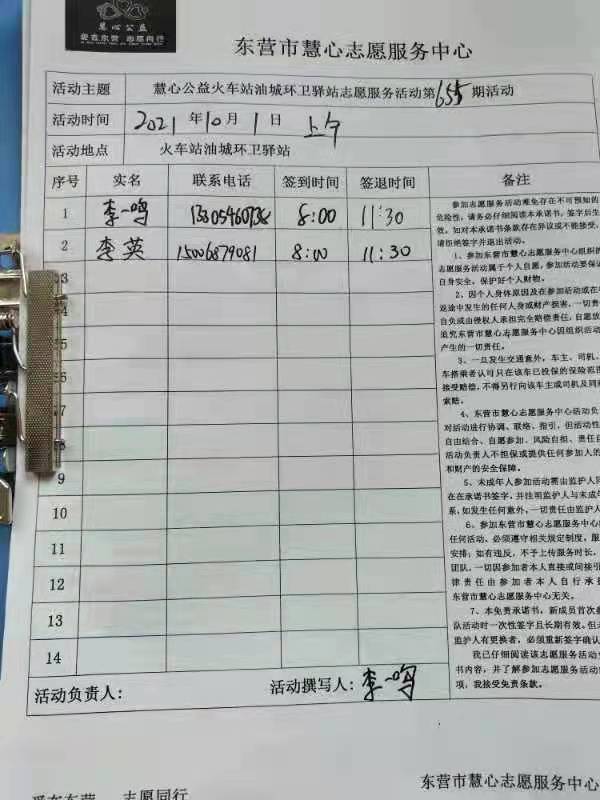 慧心公益
爱在东营 志愿同行
东营市慧心志愿服务中心
活动主题 慧心公益火车站油城环卫驿站志愿服务活动第655期活动
活动时间 2021年10月1日 上午
活动地点 火车站油城环卫驿站
序号 实名 联系电话 签到时间 签退时间 备注
1 李一鸣 13305460738 8:00 11:30
2 李英 15006879081 8:00 11:30
3
4
5
6
7
8
9
10
11
12
13
14
参加志愿服务活动难免存在不可预知的
危险性，请务必仔细阅读本承诺书，签字后生
效。如对本承诺书条款存在异议或不能接受，
请拒绝签字并退出活动。
1、参加东营市慧心志愿服务中心组织的
志愿服务活动属于个人自愿，参加活动要保证
自身安全，保护好个人财物。
2、因个人身体原因及在参加活动或在
返途中发生的任何人身或财产损害，一切责
自负或由侵权人承担完全赔偿责任，自愿放
追究东营市慧心志愿服务中心因组织活动
产生的一切责任。
3、一旦发生交通意外，车主、司机、
车搭乘者认可只在该车已投保的保险范围
接受赔偿，不得另行向该车主或司机及同
索赔。
4、东营市慧心志愿服务中心活动负
对活动进行协调、联络、指引，但活动性
自由结合、自愿参加、风险自担、责任自
活动负责人不担保或提供任何参加人的
和财产的安全保障。
5、未成年人参加活动需由监护人同
在在承诺书签字，并注明监护人与未成年
系，如发生任何意外，一切责任由监护人
6、参加东营市慧心志愿服务中心
任何活动，必须遵守相关规定制度，服
安排；如有违反，不予上传服务时长，
团队，一切因参加者本人直接或间接引
律责任由参加者本人自行承担
东营市慧心志愿服务中心无关。
7、本免责承诺书，新成员首次参
队活动时一次性签字且长期有效。但未
监护人有更换者，必须重新签字确认
我已仔细阅读该志愿服务活动
书内容，并了解参加志愿服务活动
项，我接受免责条款。
活动负责人： 活动撰写人：李一鸣
东营市慧心志愿服务中心
爱在东营 志愿同行